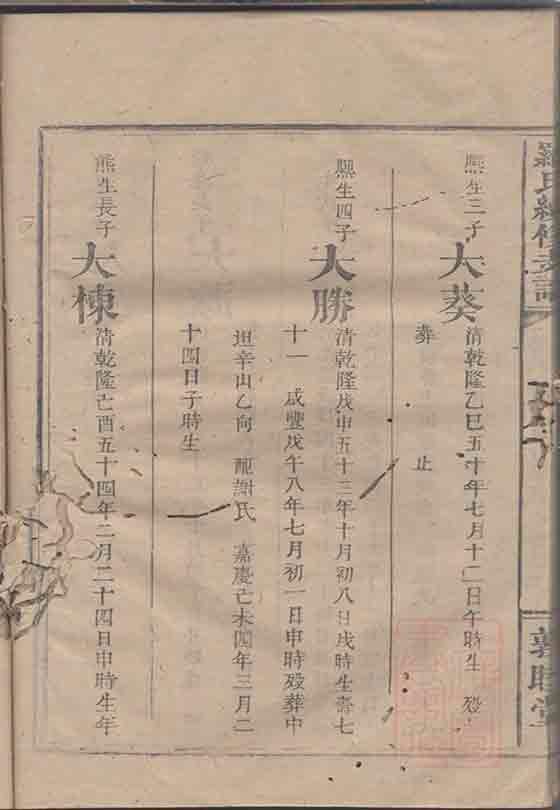 羅氏續修支譜
敦睦堂
熙生三子
大葵
清乾隆乙巳五十年七月十二日午時生 殁
葬 止
熙生四子
大勝
清乾隆戊申五十三年十月初八日戌時生壽七
十一 咸豐戊午八年七月初一日申時殁葬中
坦辛山乙向 配謝氏 嘉慶己未四年三月二
十四日子時生
熊生長子
大棟
清乾隆己酉五十四年二月二十四日申時生年